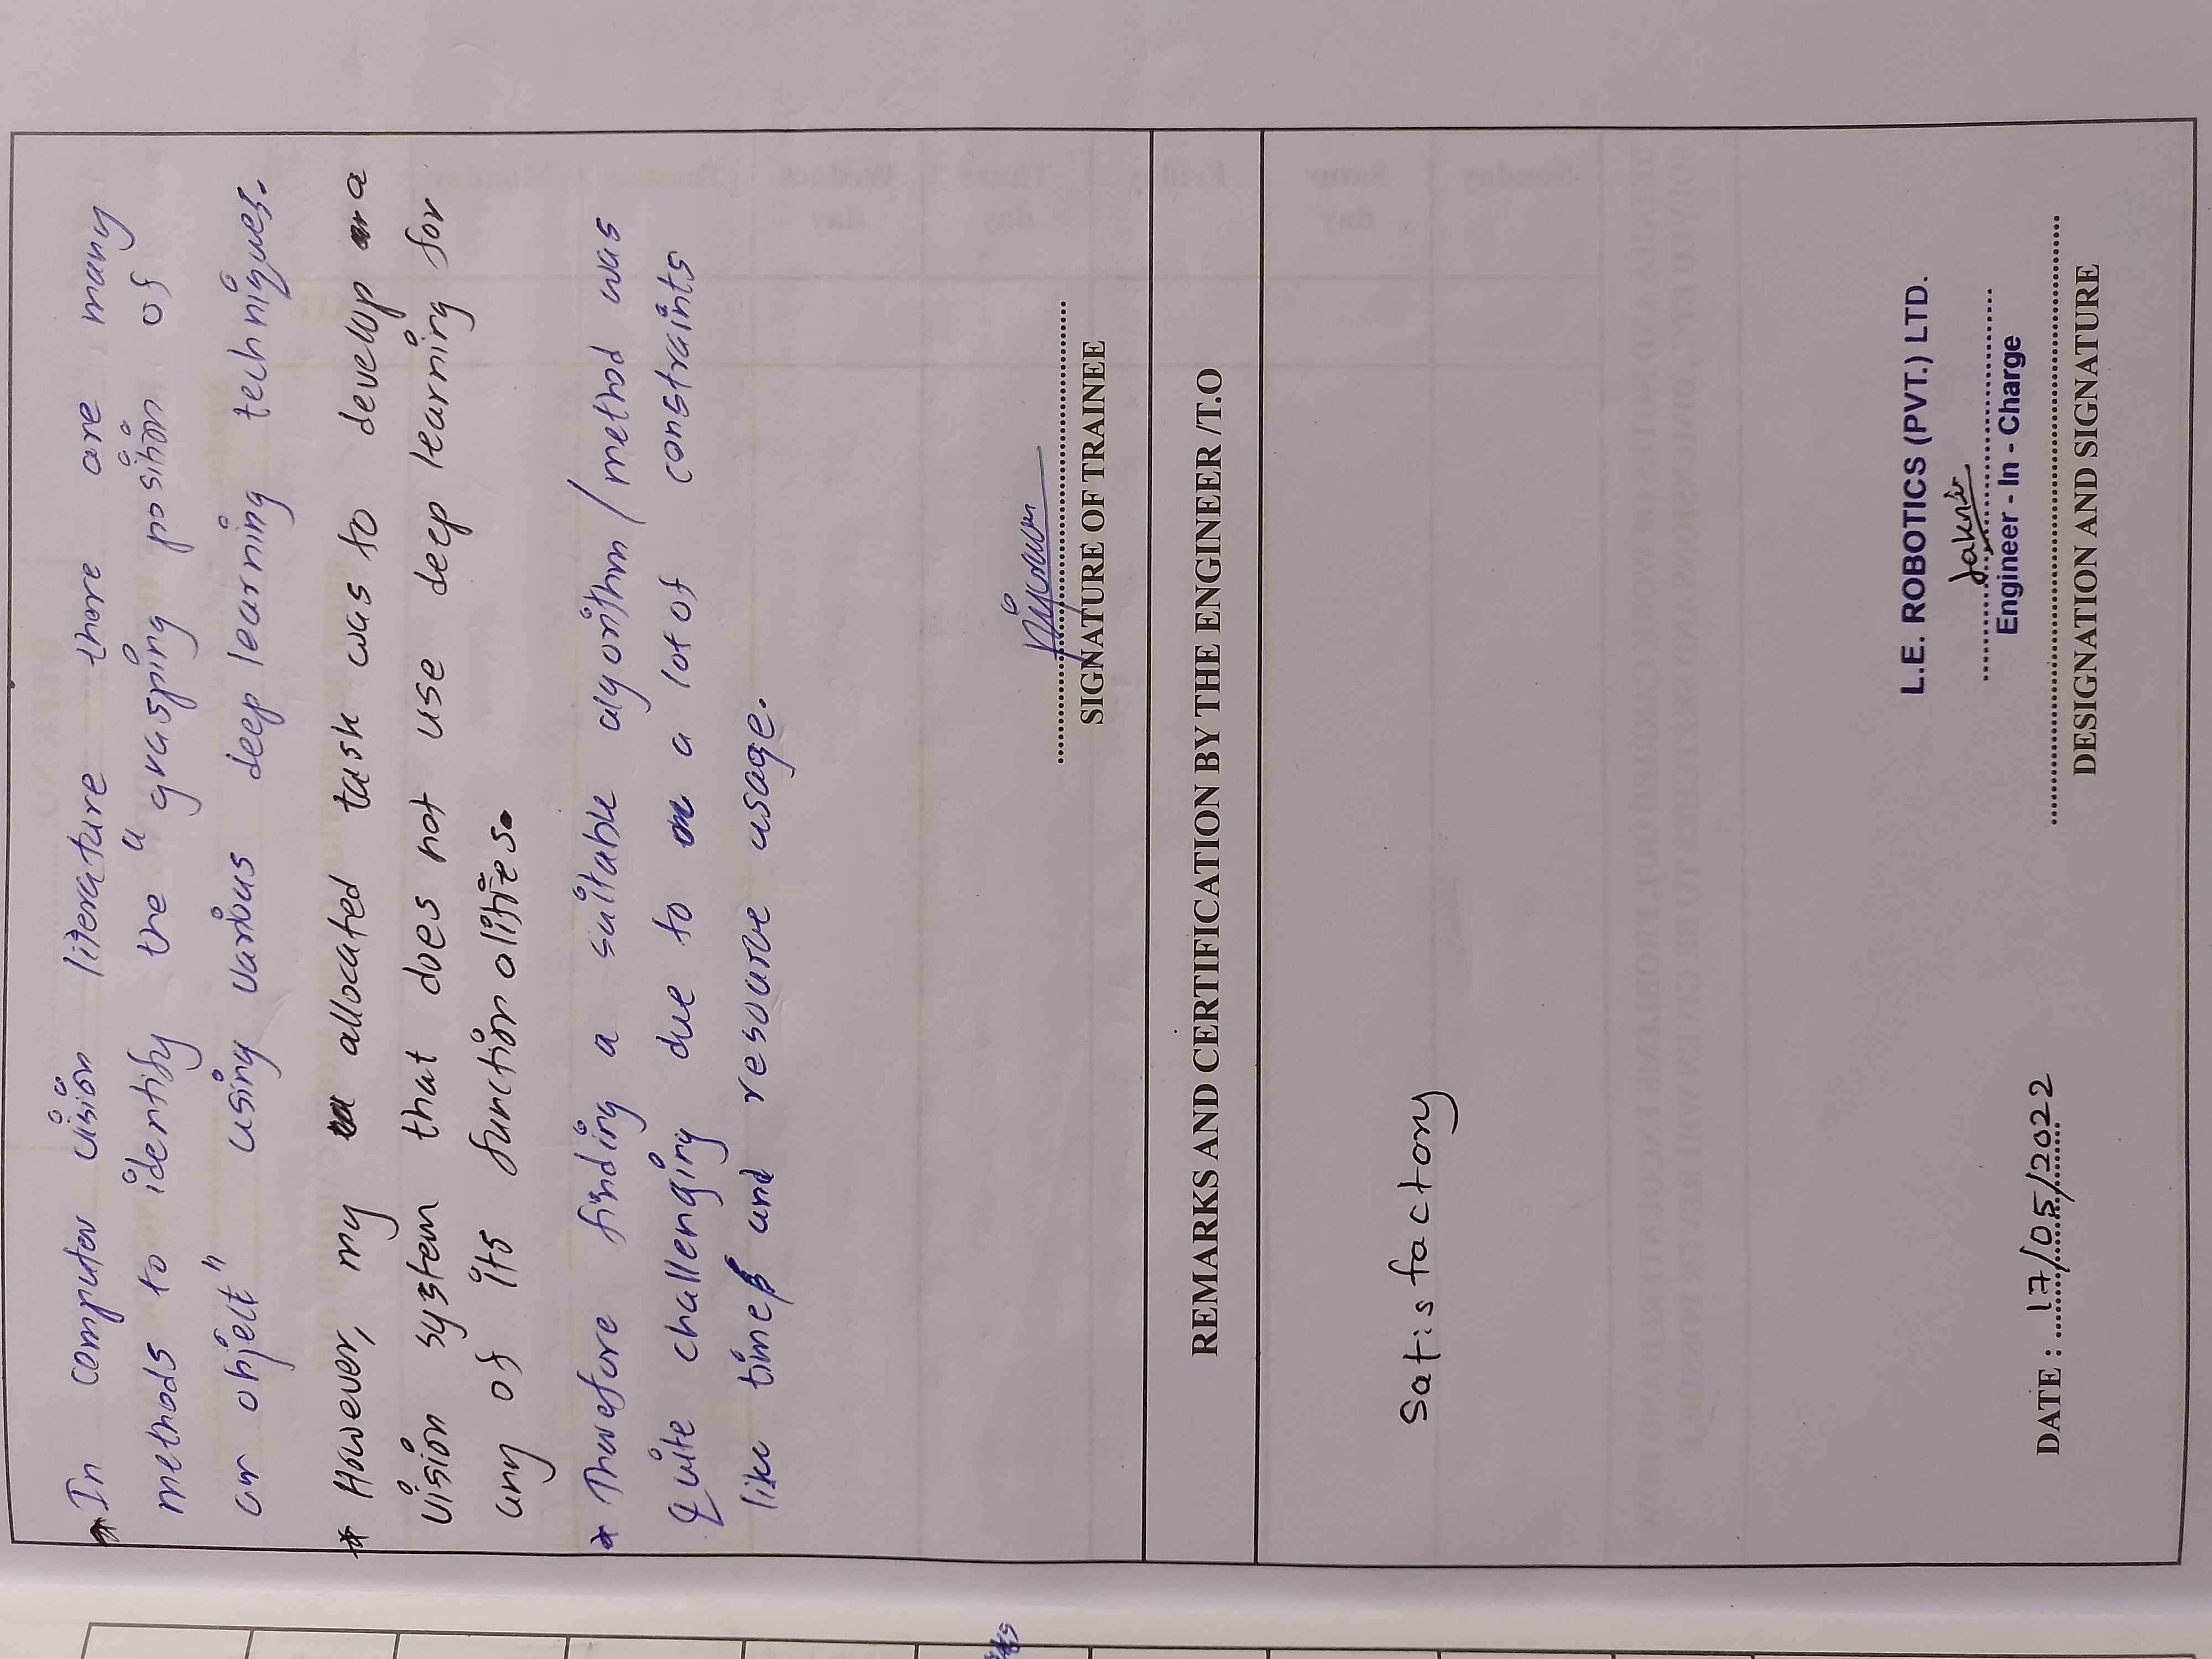 * In computer vision literature there are many
methods to identify the "grasping position of
an object" using various deep learning techniques.
* However, my allocated task was to develop a
vision system that does not use deep learning for
any of its functionalities.
* Therefore finding a suitable algorithm/method was
quite challenging due to a lot of constraints
like time and resource usage.
SIGNATURE OF TRAINEE
REMARKS AND CERTIFICATION BY THE ENGINEER /T.O
Satisfactory
L.E. ROBOTICS (PVT.) LTD.
Engineer - In - Charge
DATE : 17/05/2022
DESIGNATION AND SIGNATURE